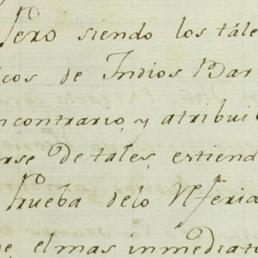 Pero siendo los tále
cos de Indios Bar
ncontrario, y atribui
rse de tales, estiend
Prueba delo
e, elmas inmediato